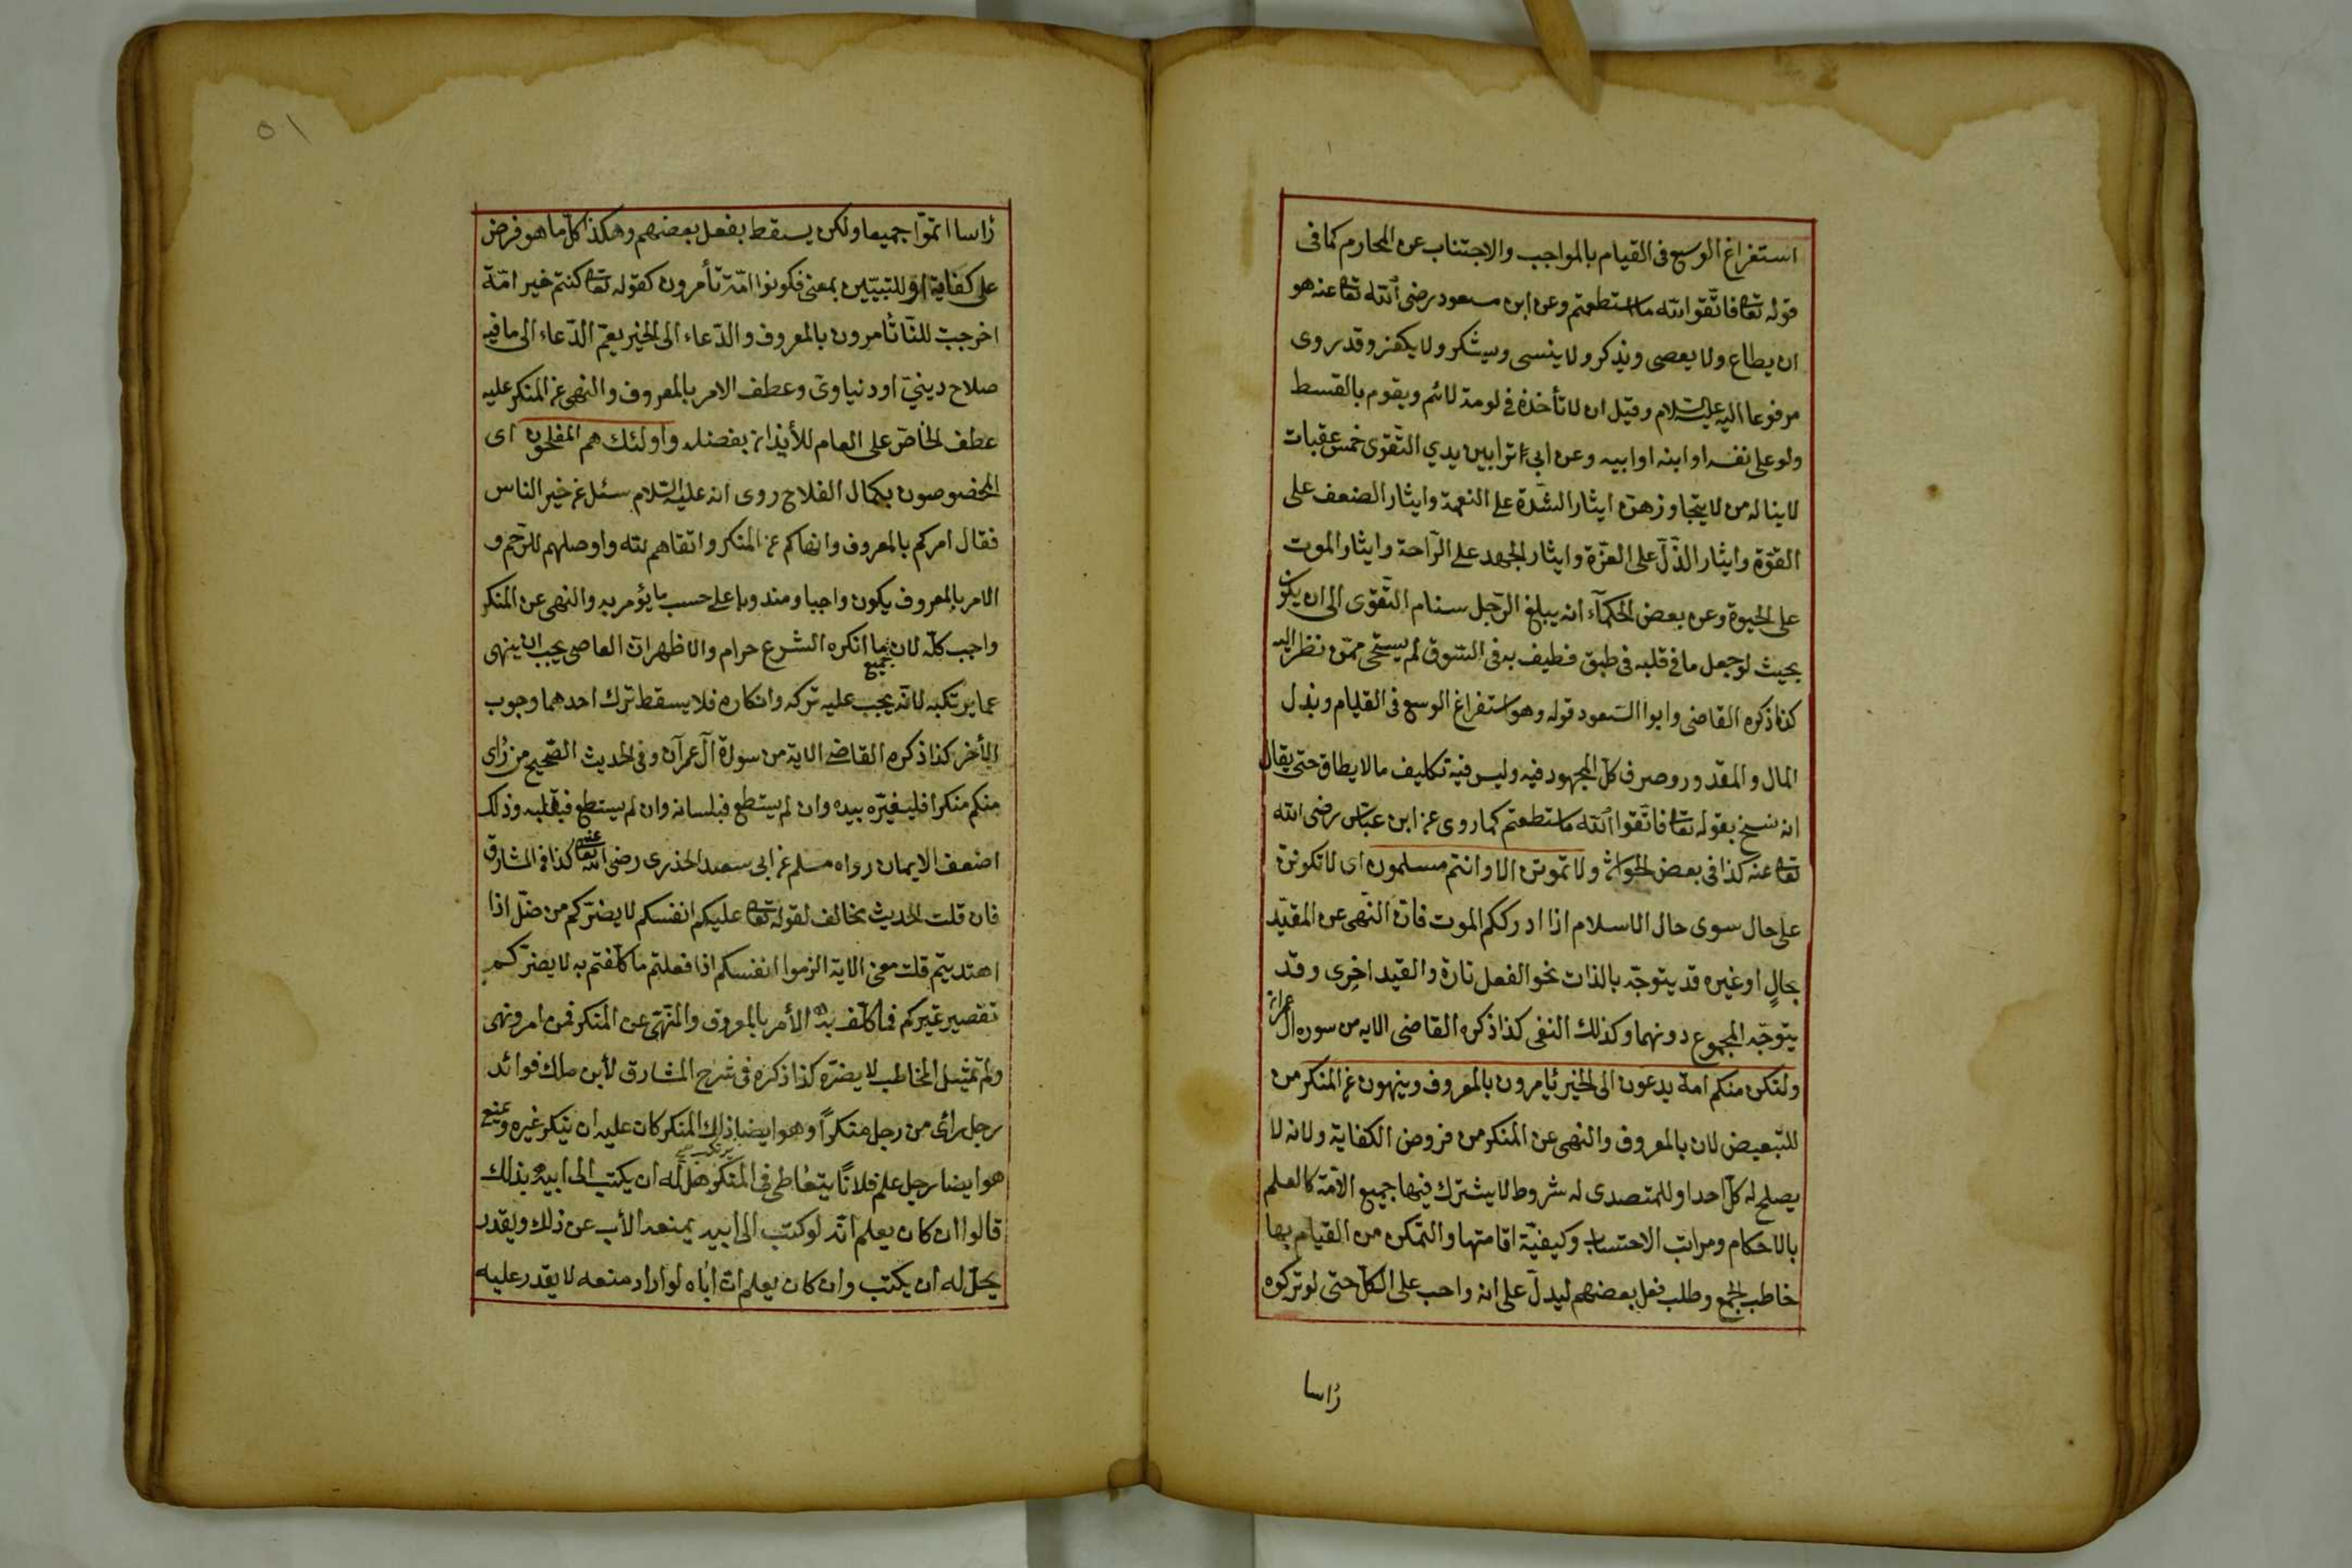 استفراغ الوسع فى القيام بالمواجب والاجتناب عن المحارم كما فى
قوله تعا فاتقوا الله ما استطعتم وعن ابن مسعود رضى الله تعا عنه هو
ان يطاع ولا يعصى ويذكر ولا ينسى ويشكر ولا يكفر وقد روى
مرفوعا اليه عليه السلام وقيل ان لا تأخذه فى لومة لائم ويقوم بالقسط
ولو على نفسه او ابنه او ابيه وعن ابى تراب بين يدي التقوى خمس عقبات
لا يناله من لا يتجاوزهن ايثار الشدة على النعمة وايثار الضعف على
القوة وايثار الذل على العزة وايثار الجهد على الراحة وايثار الموت
على الحيوة وعن بعض الحكماء انه يبلغ الرجل سنام التقوى الى ان يكون
بحيث لو جعل ما فى قلبه فى طبق فطيف به فى السوق لم يستحى ممن نظر اليه
كذا ذكره القاضى وابوا السعود قوله وهو استفراغ الوسع فى القيام وبذل
المال والمقدور وصرف كل المجهود فيه وليس فيه تكليف مالا يطاق حتى يقال
انه نسخ بقوله تعا فاتقوا الله ما ستطعتم كما روى عن ابن عباس رضى الله
تعا عنه كذا فى بعض الحواشى ولا تموتن الا وانتم مسلمون اى لا تكونن
على حال سوى حال الاسلام اذا ادرككم الموت فان النهى عن المقيد
بحال او غيره قد يتوجه بالذات نحو الفعل تارة والقيد اخرى وقد
يتوجه المجموع دونهما وكذلك النفى كذا ذكره القاضى الايه من سوره ال عمران
ولتكن منكم امة يدعون الى الخير يأمرون بالمعروف وينهون عن المنكر من
للتبعيض لان بالمعروف والنهى عن المنكر من فروض الكفاية ولانه لا
يصلح له كل احد او للمتصدى له شروط لا يشترك فيها جميع الامة كالعلم
بالاحكام ومراتب الاحتساب وكيفية اقامتها والتمكن من القيام بها
خاطب الجمع وطلب فعل بعضهم ليدل على انه واجب على الكل حتى لو تركوه
رأسا
٥١
رأسا اثموا جميعا ولكن يسقط بفعل بعضهم وهكذا كل ما هو فرض
على كفاية او للتبيين بمعنى فكونوا امة تأمرون كقوله تعا كنتم خير امة
اخرجت للناس تأمرون بالمعروف والدعاء الى الخير يعم الدعاء الى ما فيه
صلاح دينى او دنياوى وعطف الامر بالمعروف والنهى عن المنكر عليه
عطف الخاص على العام للأيذان بفضله واولئك هم المفلحون اى
المخصوصون بكمال الفلاح روى انه عليه السلام سئل عن خير الناس
فقال امركم بالمعروف وانهاكم عن المنكر واتقاهم لله واوصلهم للرحم و
الامر بالمعروف يكون واجبا ومندوبا على حسب ما يؤمر به والنهى عن المنكر
واجب كله لان جميع ما انكره الشرع حرام والاظهر ان العاصى يجب ان ينهى
عما يرتكبه لانه يجب عليه تركه وانكاره فلا يسقط ترك احدهما وجوب
الأخر كذا ذكره القاضى الاية من سورة آل عمرآن وفى الحديث الصحيح من رأى
منكم منكرا فليغيره بيده وان لم يستطع فبلسانه وان لم يستطع فبقلبه وذلك
اضعف الايمان رواه مسلم عن ابى سعيد الخدرى رضى الله تعا عنه كذا فى المشارق
فان قلت الحديث يخالف لقوله تعا عليكم انفسكم لا يضركم من ضل اذا
اهتديتم قلت معنى الاية الزموا انفسكم اذا فعلتم ما كلفتم به لا يضركم
تقصير غيركم فما كلف به الأمر بالمعروف والنهى عن المنكر فمن امر ونهى
ولم تمثيل المخاطب لا يضره كذا ذكره فى شرح المشارق لأبن ملك فوائد
رجل رأى من رجل منكرا وهو ايضا يرتكب ذلك المنكر كان عليه ان ينكر غيره ويمتنع
هو ايضا رجل علم فلانا يتعاطى فى المنكر هل له ان يكتب الى ابيه بذلك
قالوا ان كان يعلم انه لو كتب الى ابيه يمنعه الأب عن ذلك ويقدر
يحل له ان يكتب وان كان يعلم ان اباه لو اراد منعه لا يقدر عليه